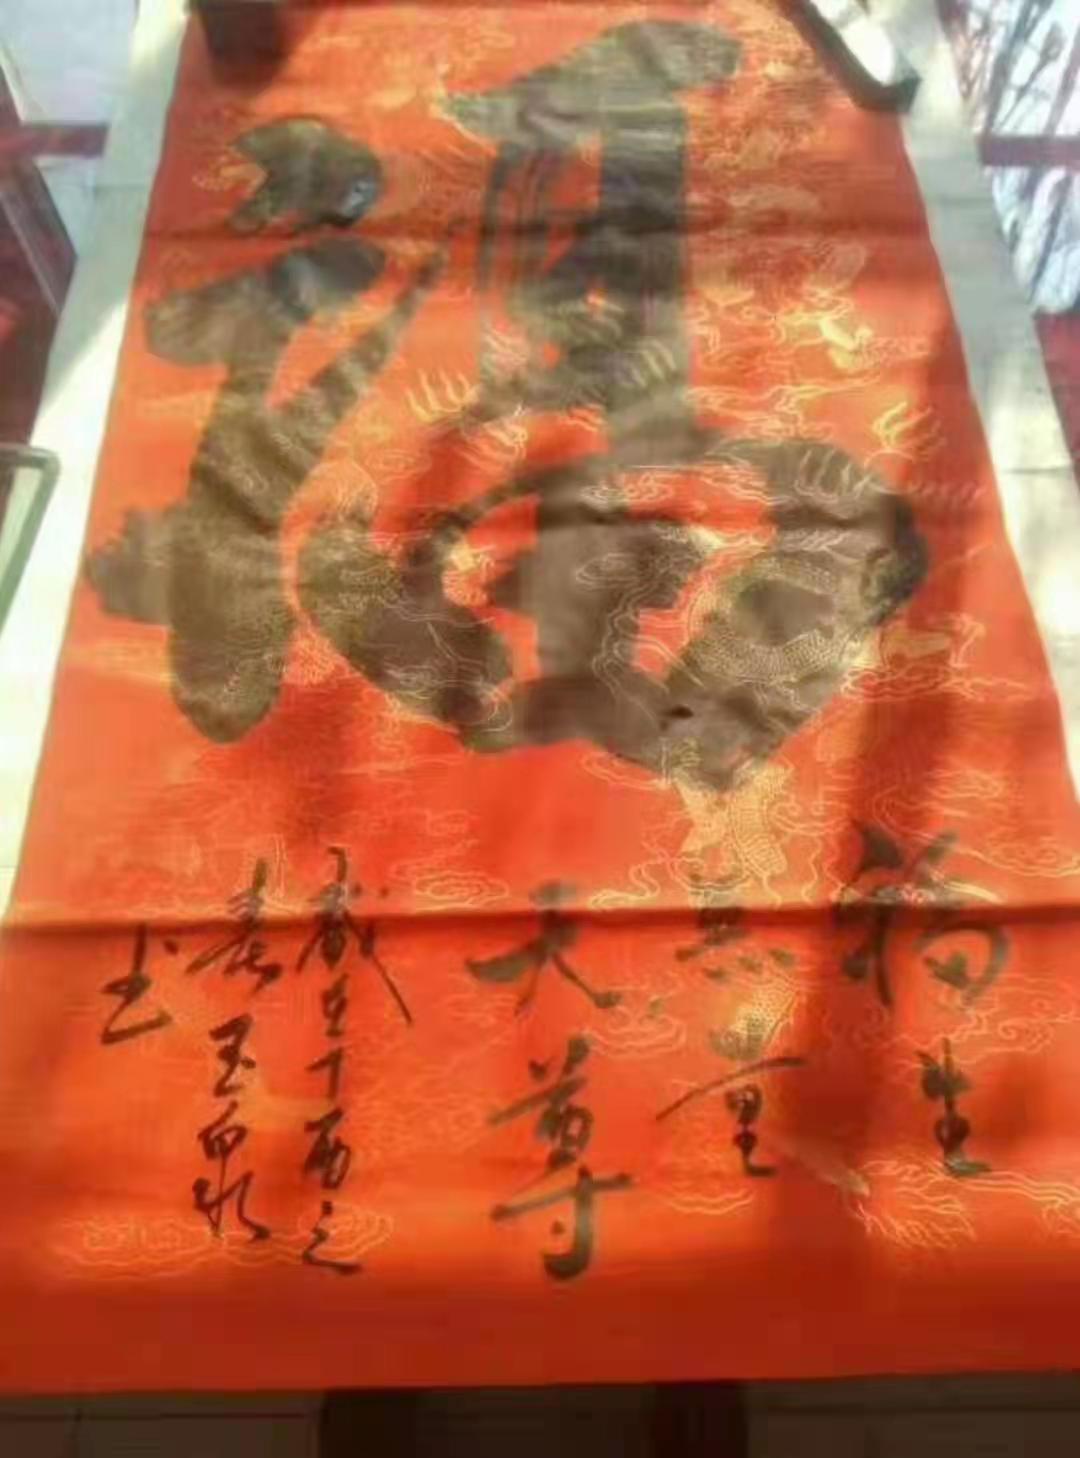 福
福生
無量
天尊
歲在丁酉之
春玉印
书